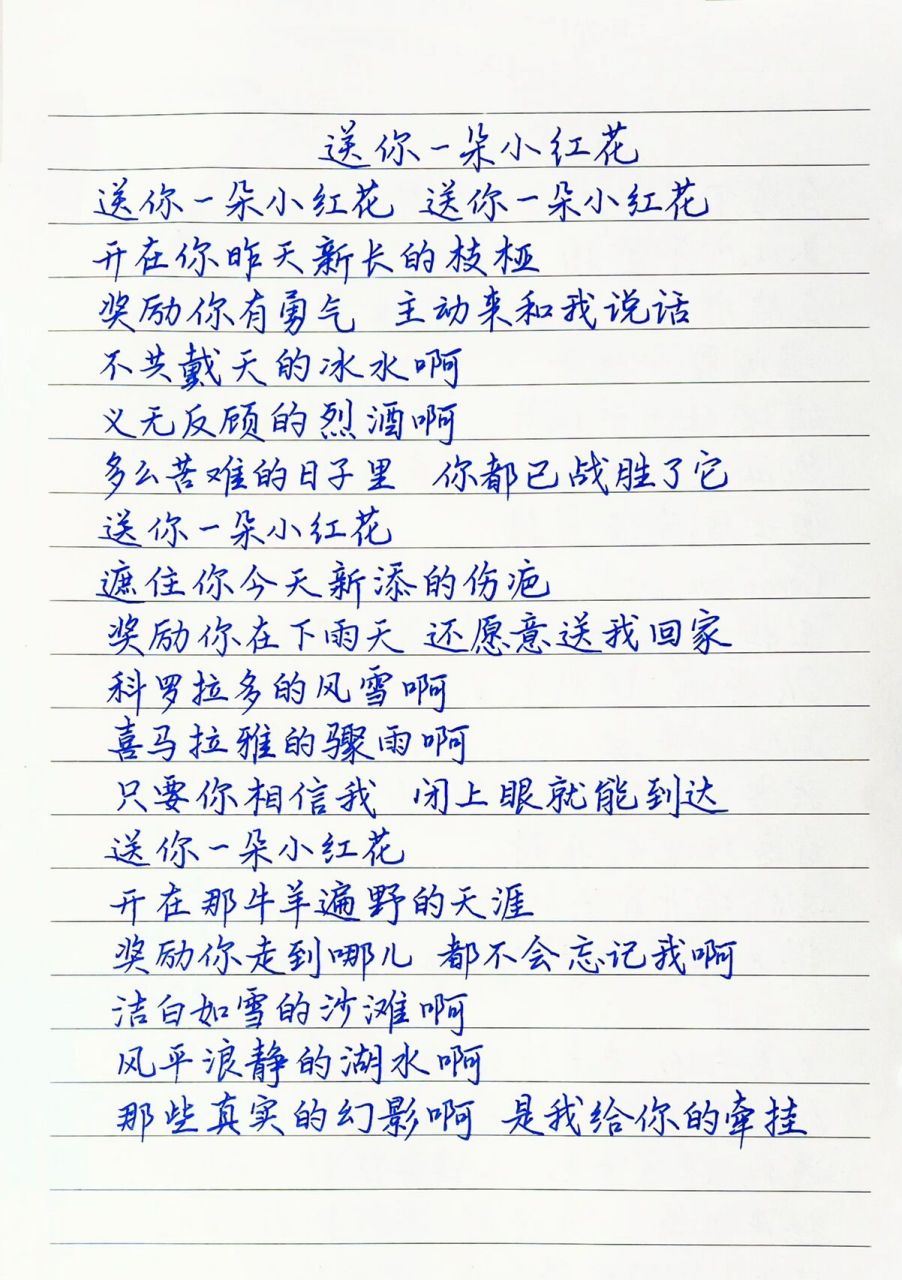 送你一朵小红花
送你一朵小红花 送你一朵小红花
开在你昨天新长的枝桠
奖励你有勇气 主动来和我说话
不共戴天的冰水啊
义无反顾的烈酒啊
多么苦难的日子里 你都已战胜了它
送你一朵小红花
遮住你今天新添的伤疤
奖励你在下雨天 还愿意送我回家
科罗拉多的风雪啊
喜马拉雅的骤雨啊
只要你相信我 闭上眼就能到达
送你一朵小红花
开在那牛羊遍野的天涯
奖励你走到哪儿 都不会忘记我啊
洁白如雪的沙滩啊
风平浪静的湖水啊
那些真实的幻影啊 是我给你的牵挂